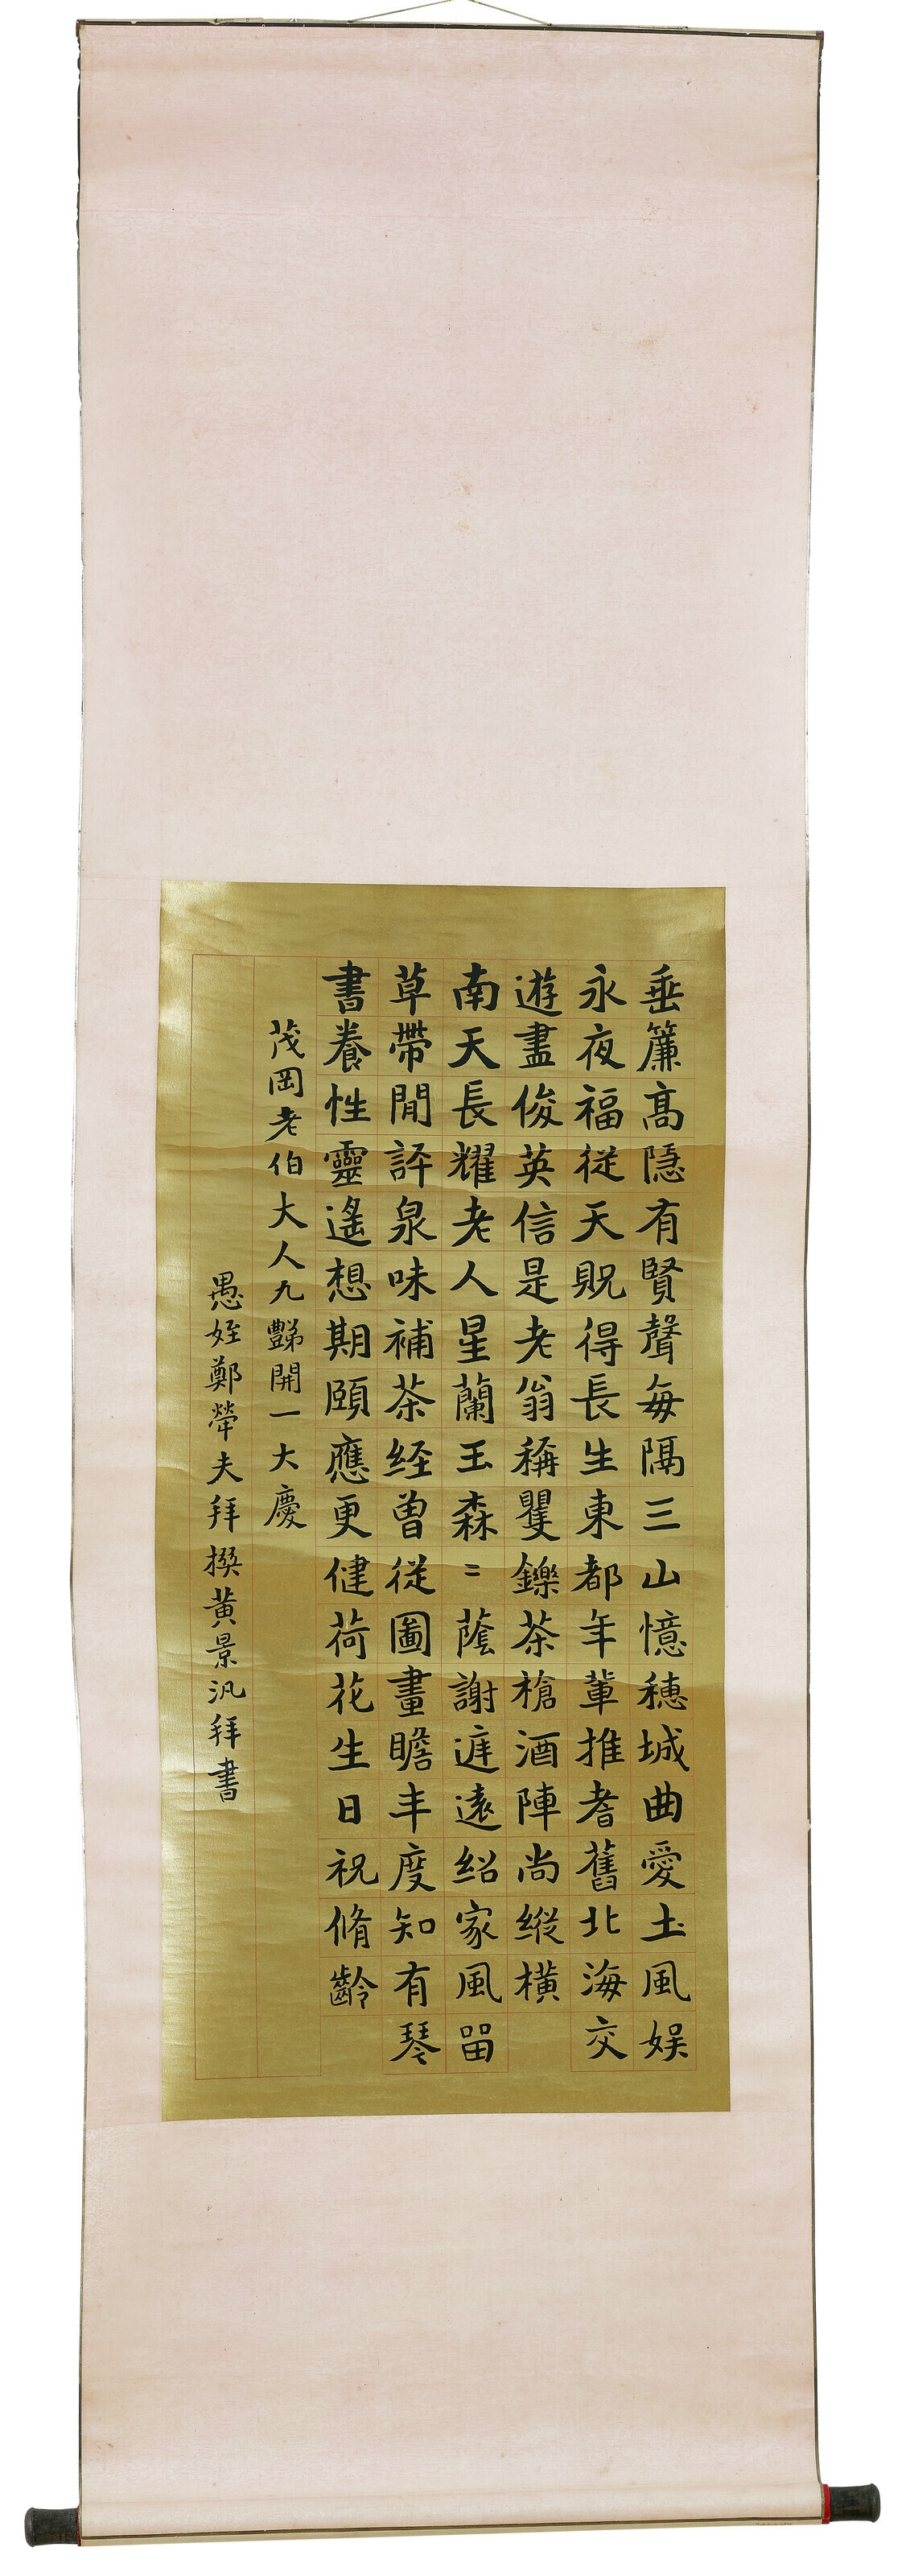 垂簾高隱有賢聲每隔三山憶穗城曲愛土風娱
永夜福從天貺得長生東都年輩推耆舊北海交
遊盡俊英信是老翁稱矍鑠茶槍酒陣尚縱橫
南天長耀老人星蘭玉森〻蔭謝庭遠紹家風畱
草帶閒評泉味補茶経曾從圖畫瞻丰度知有琴
書養性靈遙想期頤應更健荷花生日祝脩齡
茂岡老伯大人九豑開一大慶
愚姪鄭犖夫拜撰黃景汎拜書